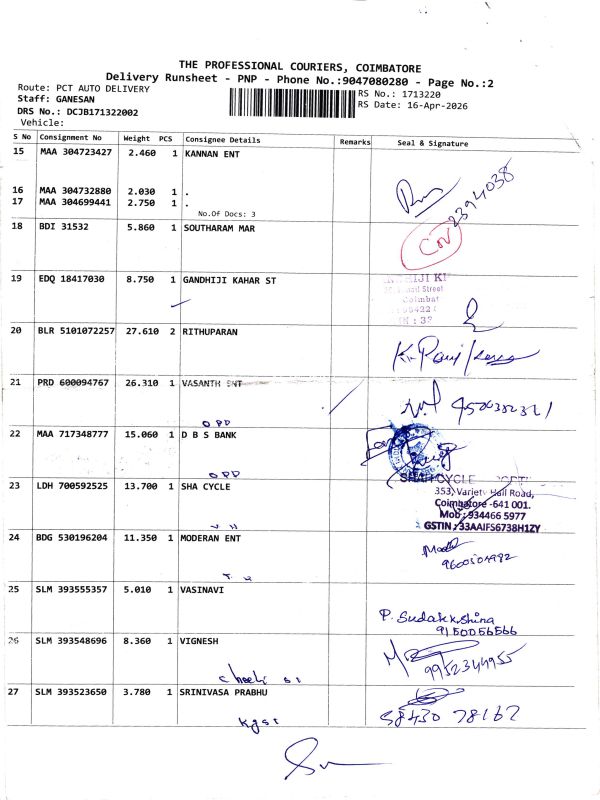 THE PROFESSIONAL COURIERS, COIMBATORE
Delivery Runsheet - PNP - Phone No.:9047080280 - Page No.:2
Route: PCT AUTO DELIVERY
Staff: GANESAN
DRS No.: DCJB171322002
Vehicle:
RS No.: 1713220
RS Date: 16-Apr-2026
S No Consignment No Weight PCS Consignee Details Remarks Seal & Signature
15 MAA 304723427 2.460 1 KANNAN ENT
16 MAA 304732880 2.030 1 .
17 MAA 304699441 2.750 1 .
No.Of Docs: 3
2394038
18 BDI 31532 5.860 1 SOUTHARAM MAR
19 EDQ 18417030 8.750 1 GANDHIJI KAHAR ST
20 BLR 5101072257 27.610 2 RITHUPARAN
21 PRD 600094767 26.310 1 VASANTH SNT
OPD
22 MAA 717348777 15.060 1 D B S BANK
OPD
23 LDH 700592525 13.700 1 SHA CYCLE
353, Variety Hall Road,
Coimbatore -641 001.
Mob : 934466 5977
GSTIN : 33AAIFS6738H1ZY
24 BDG 530196204 11.350 1 MODERAN ENT
9600504982
25 SLM 393555357 5.010 1 VASINAVI
P. Sudakkshina
9150056566
26 SLM 393548696 8.360 1 VIGNESH
9952344955
27 SLM 393523650 3.780 1 SRINIVASA PRABHU
58430 78167